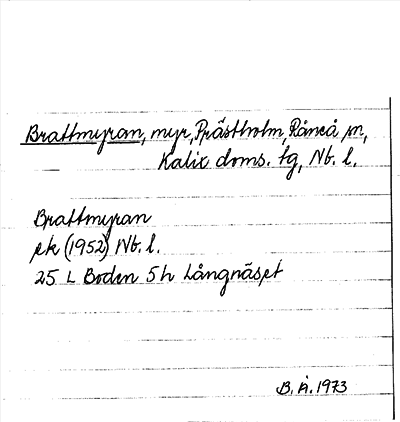 Brattmyran, myr, Prästholm, Råneå sn,
Kalix doms. tg, Nb. l.
Brattmyran
ek (1952) Nb. l.
25 L Boden 5 h Långnäset
B. Å. 1973